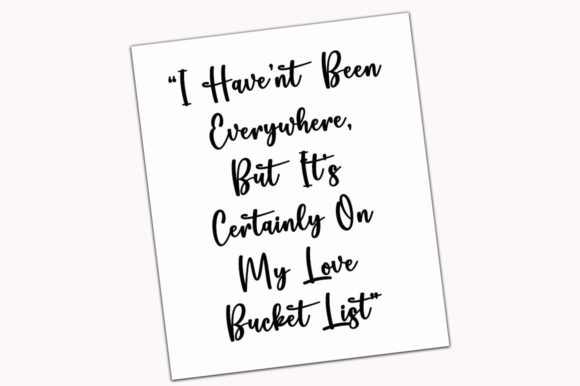 “I Have’nt Been
Everywhere,
But It’s
Certainly On
My Love
Bucket List”